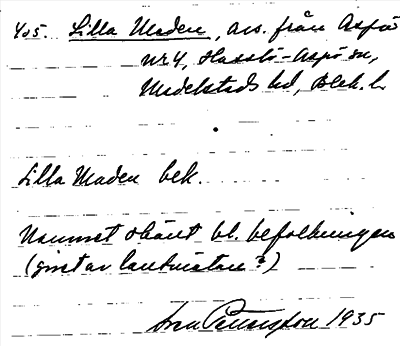 405. Lilla Maden, avs. från Aspö
nr 4, Hasslö-Aspö sn,
Medelstads hd, Blek. l.
Lilla Maden bek.
Namnet okänt bl. befolkningen
(givet av lantmätare?)
Sven Benson 1935